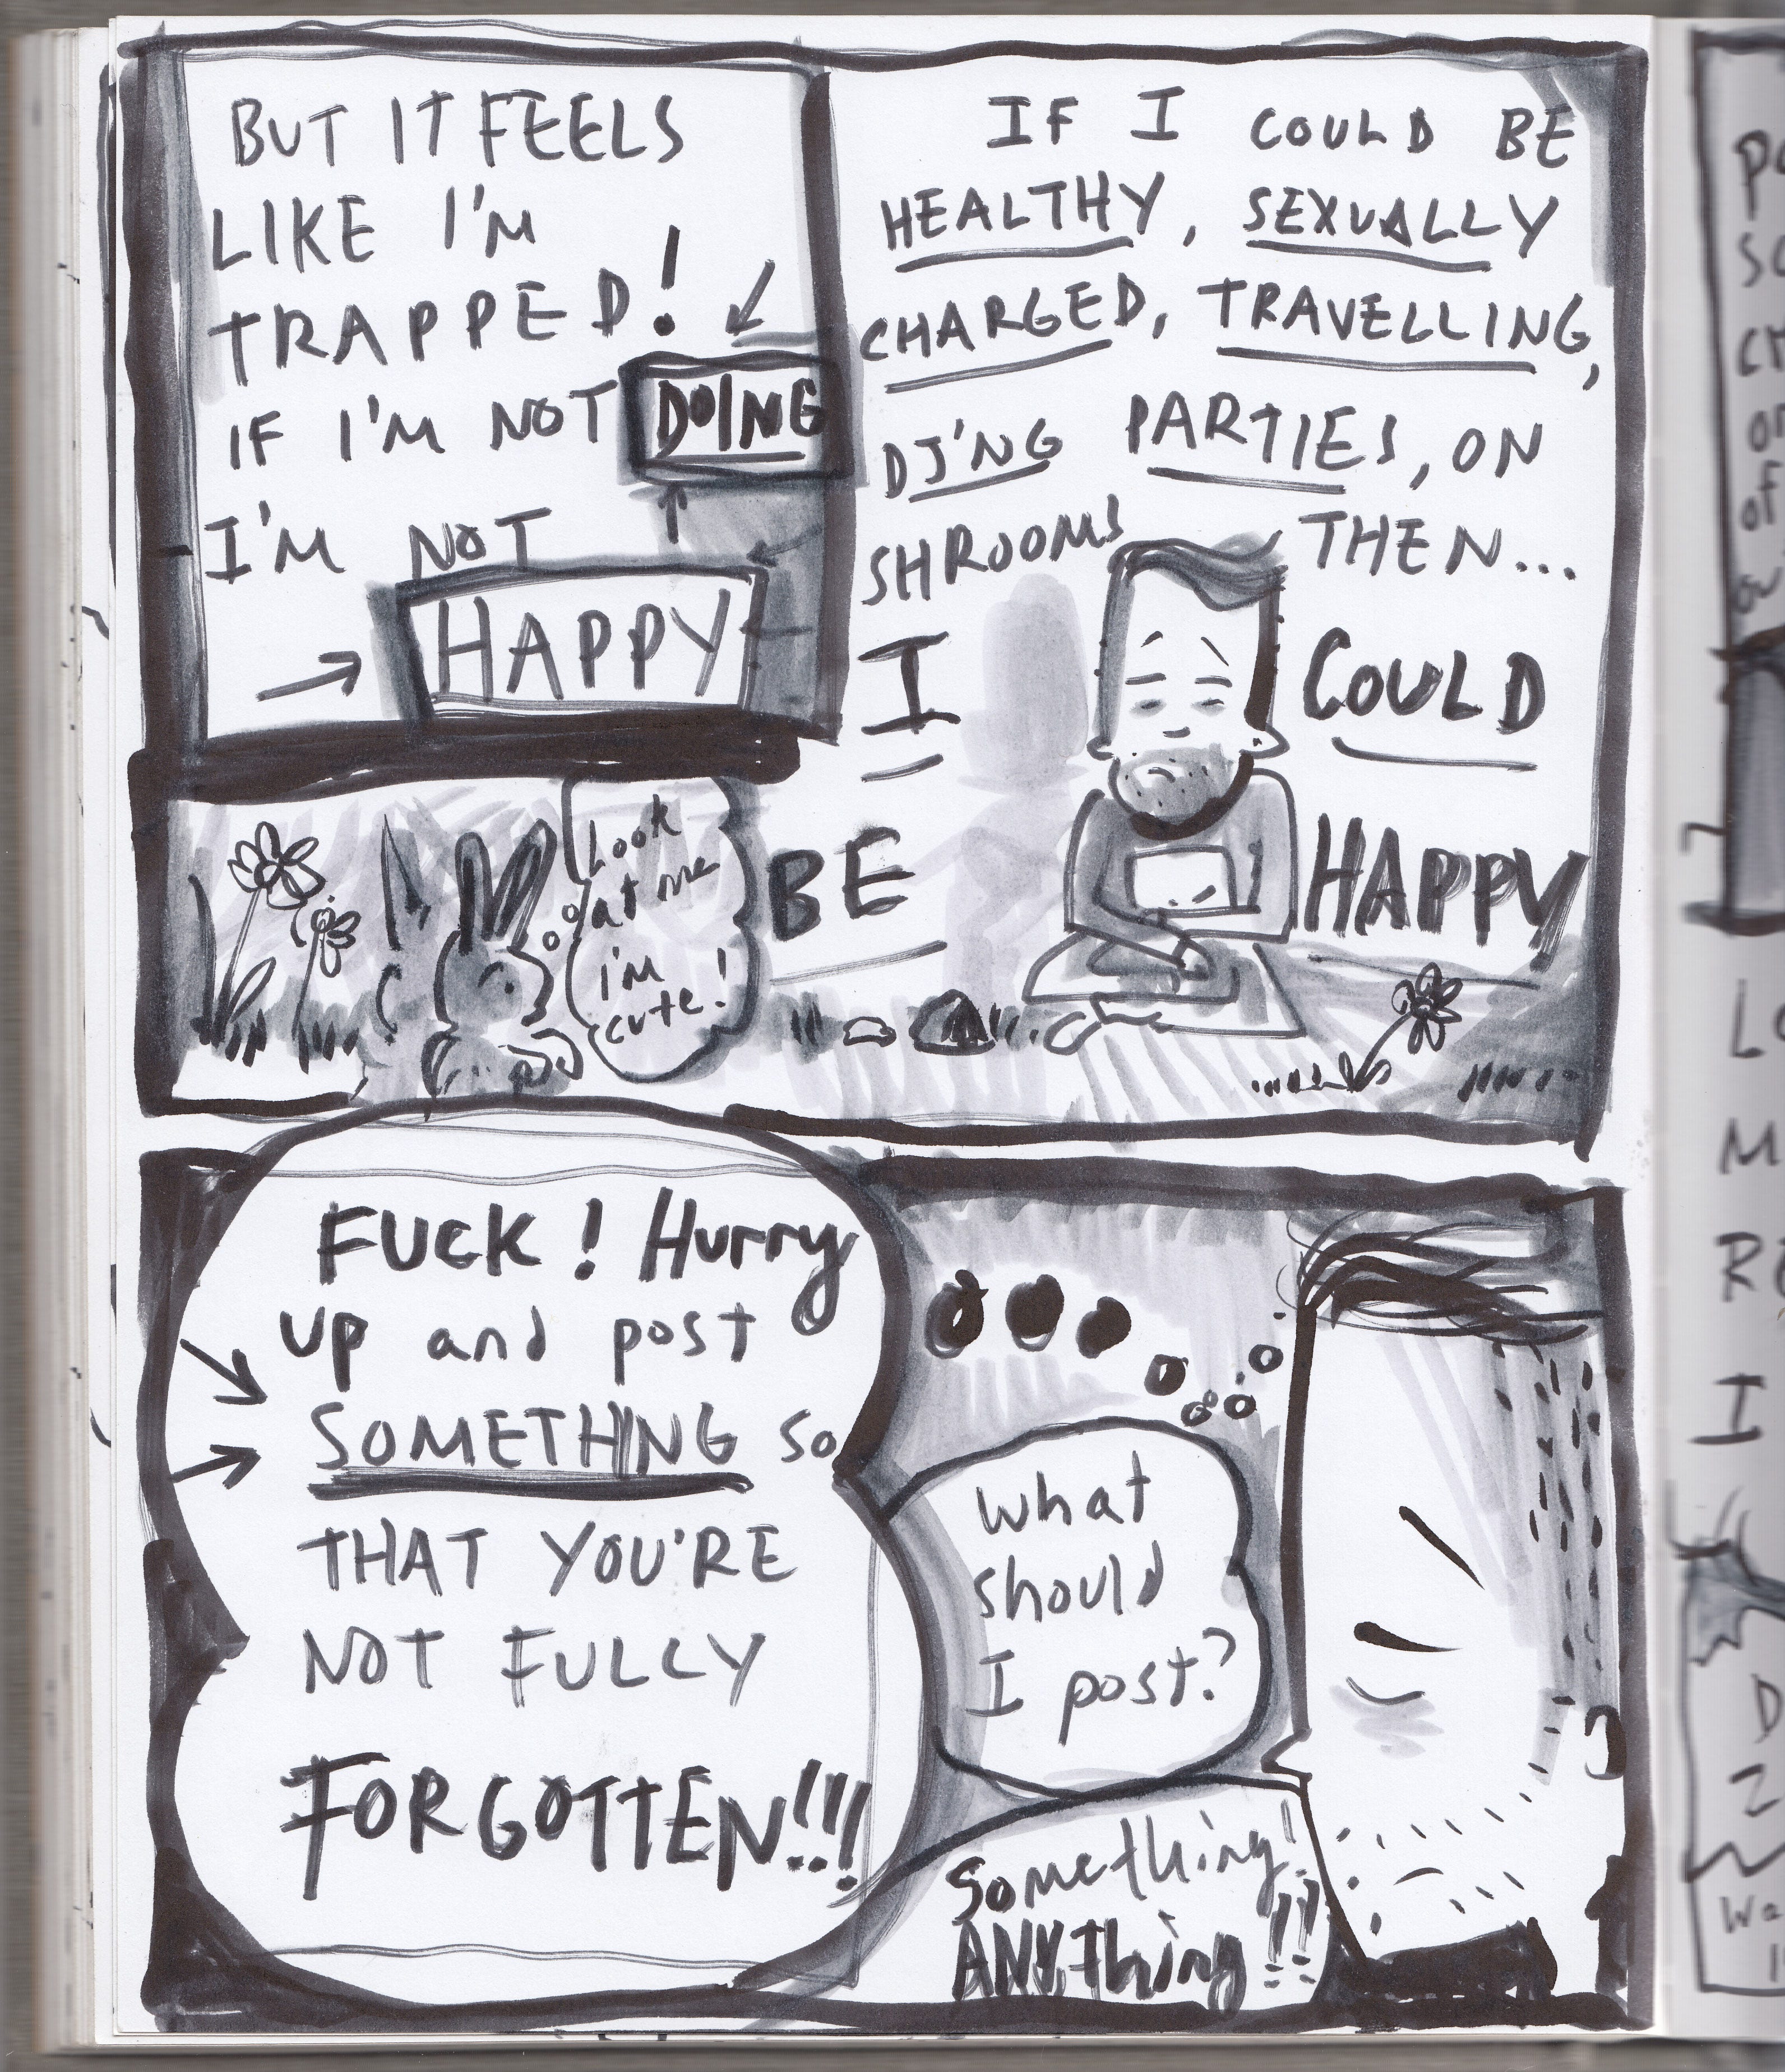 BUT IT FEELS
LIKE I'M
TRAPPED!
IF I'M NOT DOING
I'M NOT
HAPPY
IF I COULD BE
HEALTHY, SEXUALLY
CHARGED, TRAVELLING,
DJ'NG PARTIES, ON
SHROOMS THEN...
I COULD
BE HAPPY
Look
at me
i'm
cute!
FUCK! Hurry
up and post
SOMETHING so
THAT YOU'RE
NOT FULLY
FORGOTTEN!!!
What
should
I post?
Something!
ANYthing!!